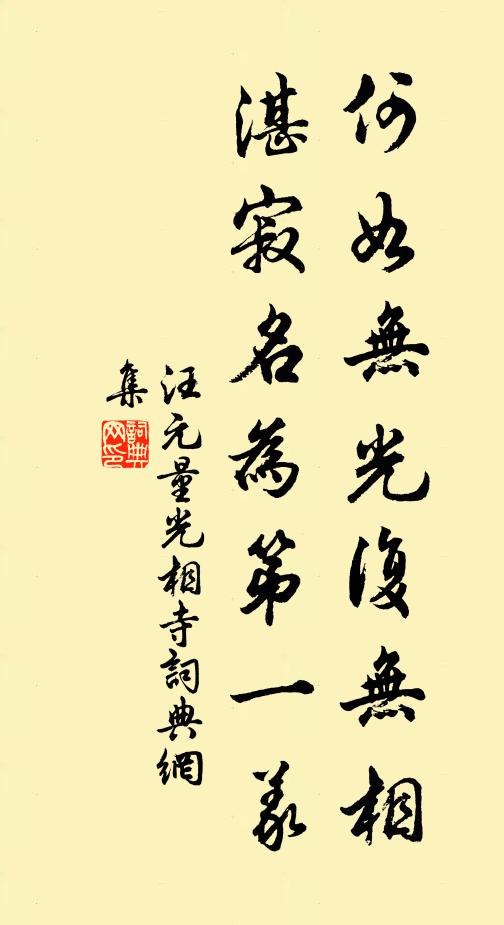 何如無光復無相
湛寂名為第一義
汪元量光相寺詞典網
集
詞典
网印